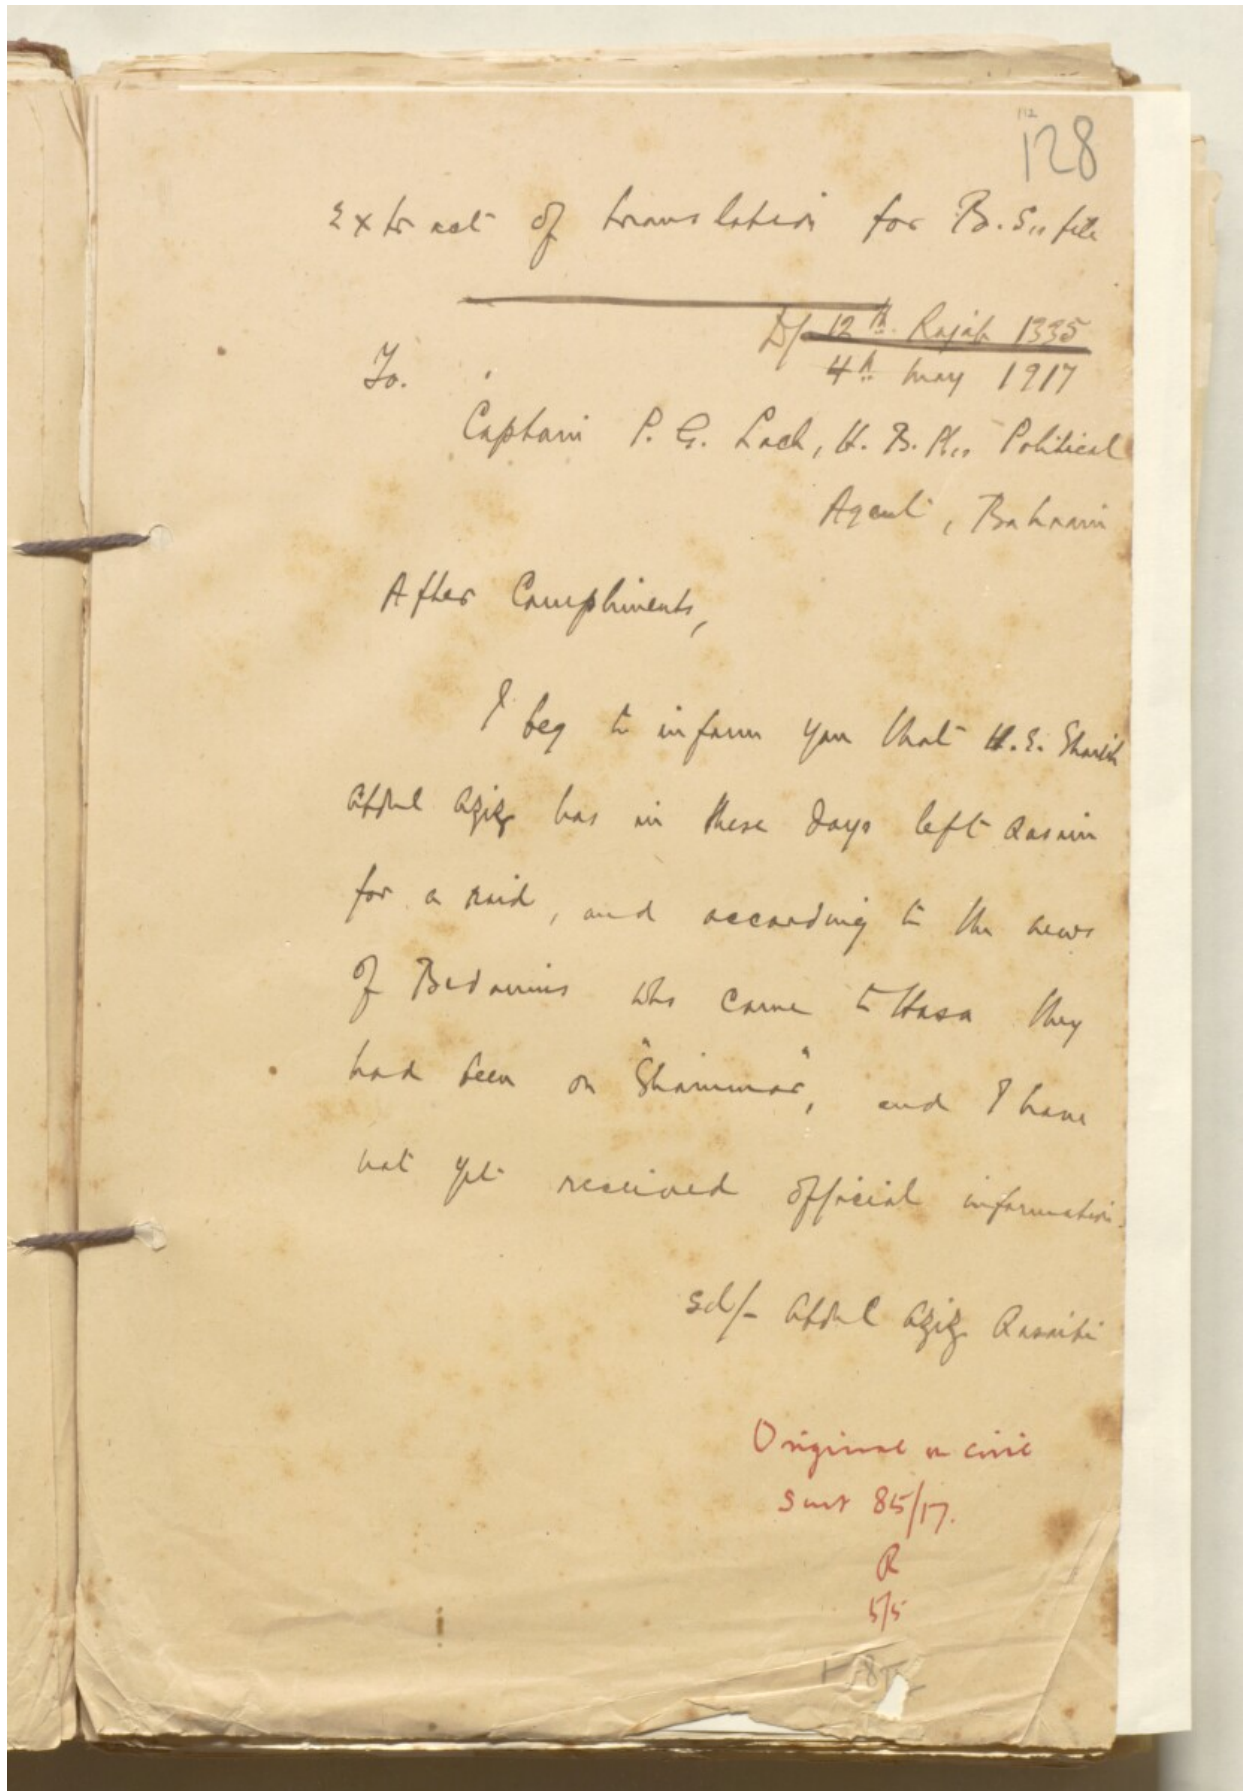 112
128
Extract of translation for B.S. file
D/ 12th Rajab 1335
4th May 1917
To.
Captain P. G. Loch, H. B. M.'s Political
Agent, Bahrain
After Compliments,
I beg to inform you that H.E. Shaikh
Abdul Aziz has in these days left Qasim
for a raid, and according to the news
of Bedouins who came to Hasa they
had been on "Shammar", and I have
not yet received official information.
Sd/- Abdul Aziz Qasaibi
Original in civil
Suit 85/17.
R
5/5